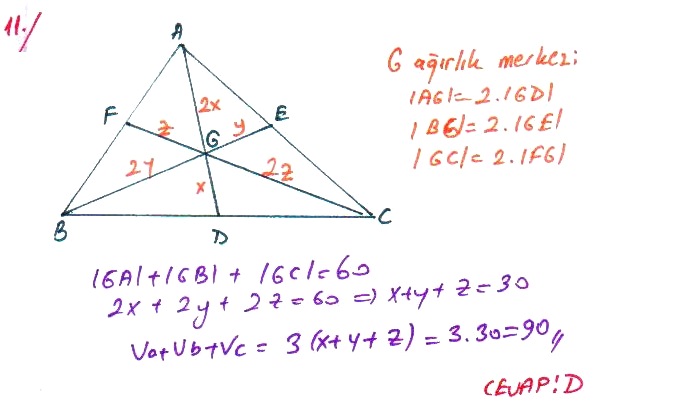 11./
A
F
E
2x
z
y
G
2y
2z
x
B
D
C
G ağırlık merkezi
|AG|=2.|GD|
|BG|=2.|GE|
|GC|=2.|FG|
|GA|+|GB|+|GC|=60
2x+2y+2z=60 => x+y+z=30
Va+Vb+Vc = 3(x+y+z)=3.30=90,,
CEVAP:D